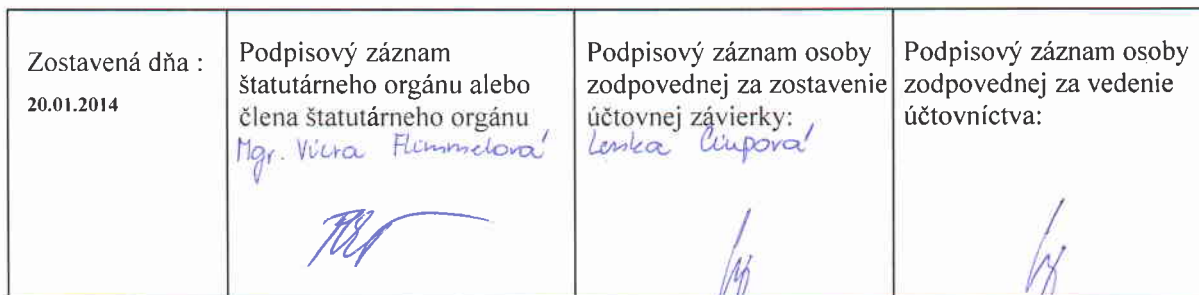 Zostavená dňa :
20.01.2014
Podpisový záznam
štatutárneho orgánu alebo
člena štatutárneho orgánu
Mgr. Viera Flimmelová
Podpisový záznam osoby
zodpovednej za zostavenie
účtovnej závierky:
Lenka
Podpisový záznam osoby
zodpovednej za vedenie
účtovníctva: